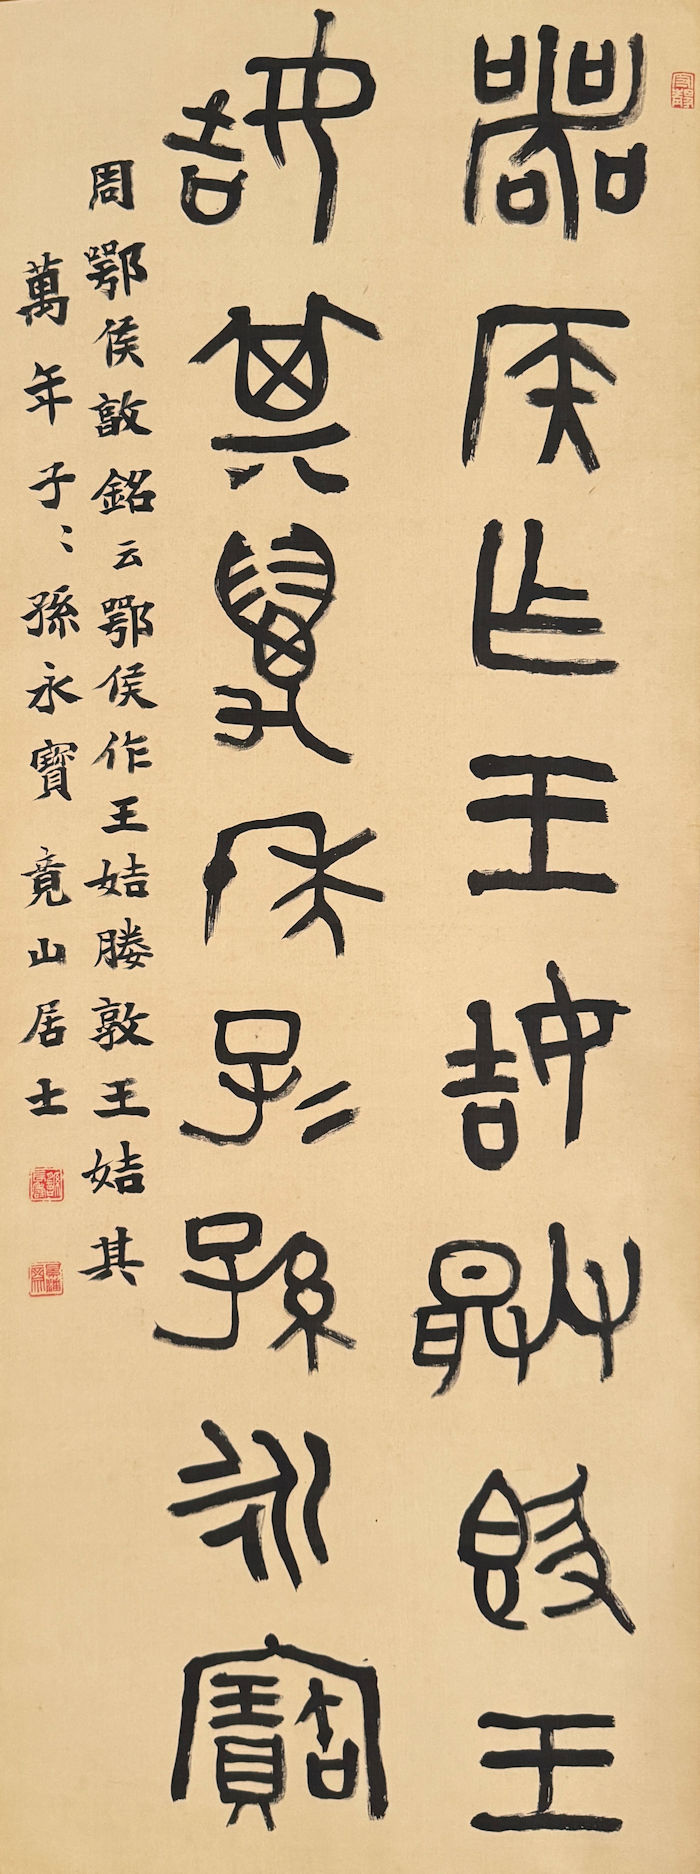 噩侯乍王姞媵𣪘王
姞其萬年子〻孫永寶
周鄂侯敦銘云鄂侯作王姞媵敦王姞其
萬年子〻孫永寶 竟山居士